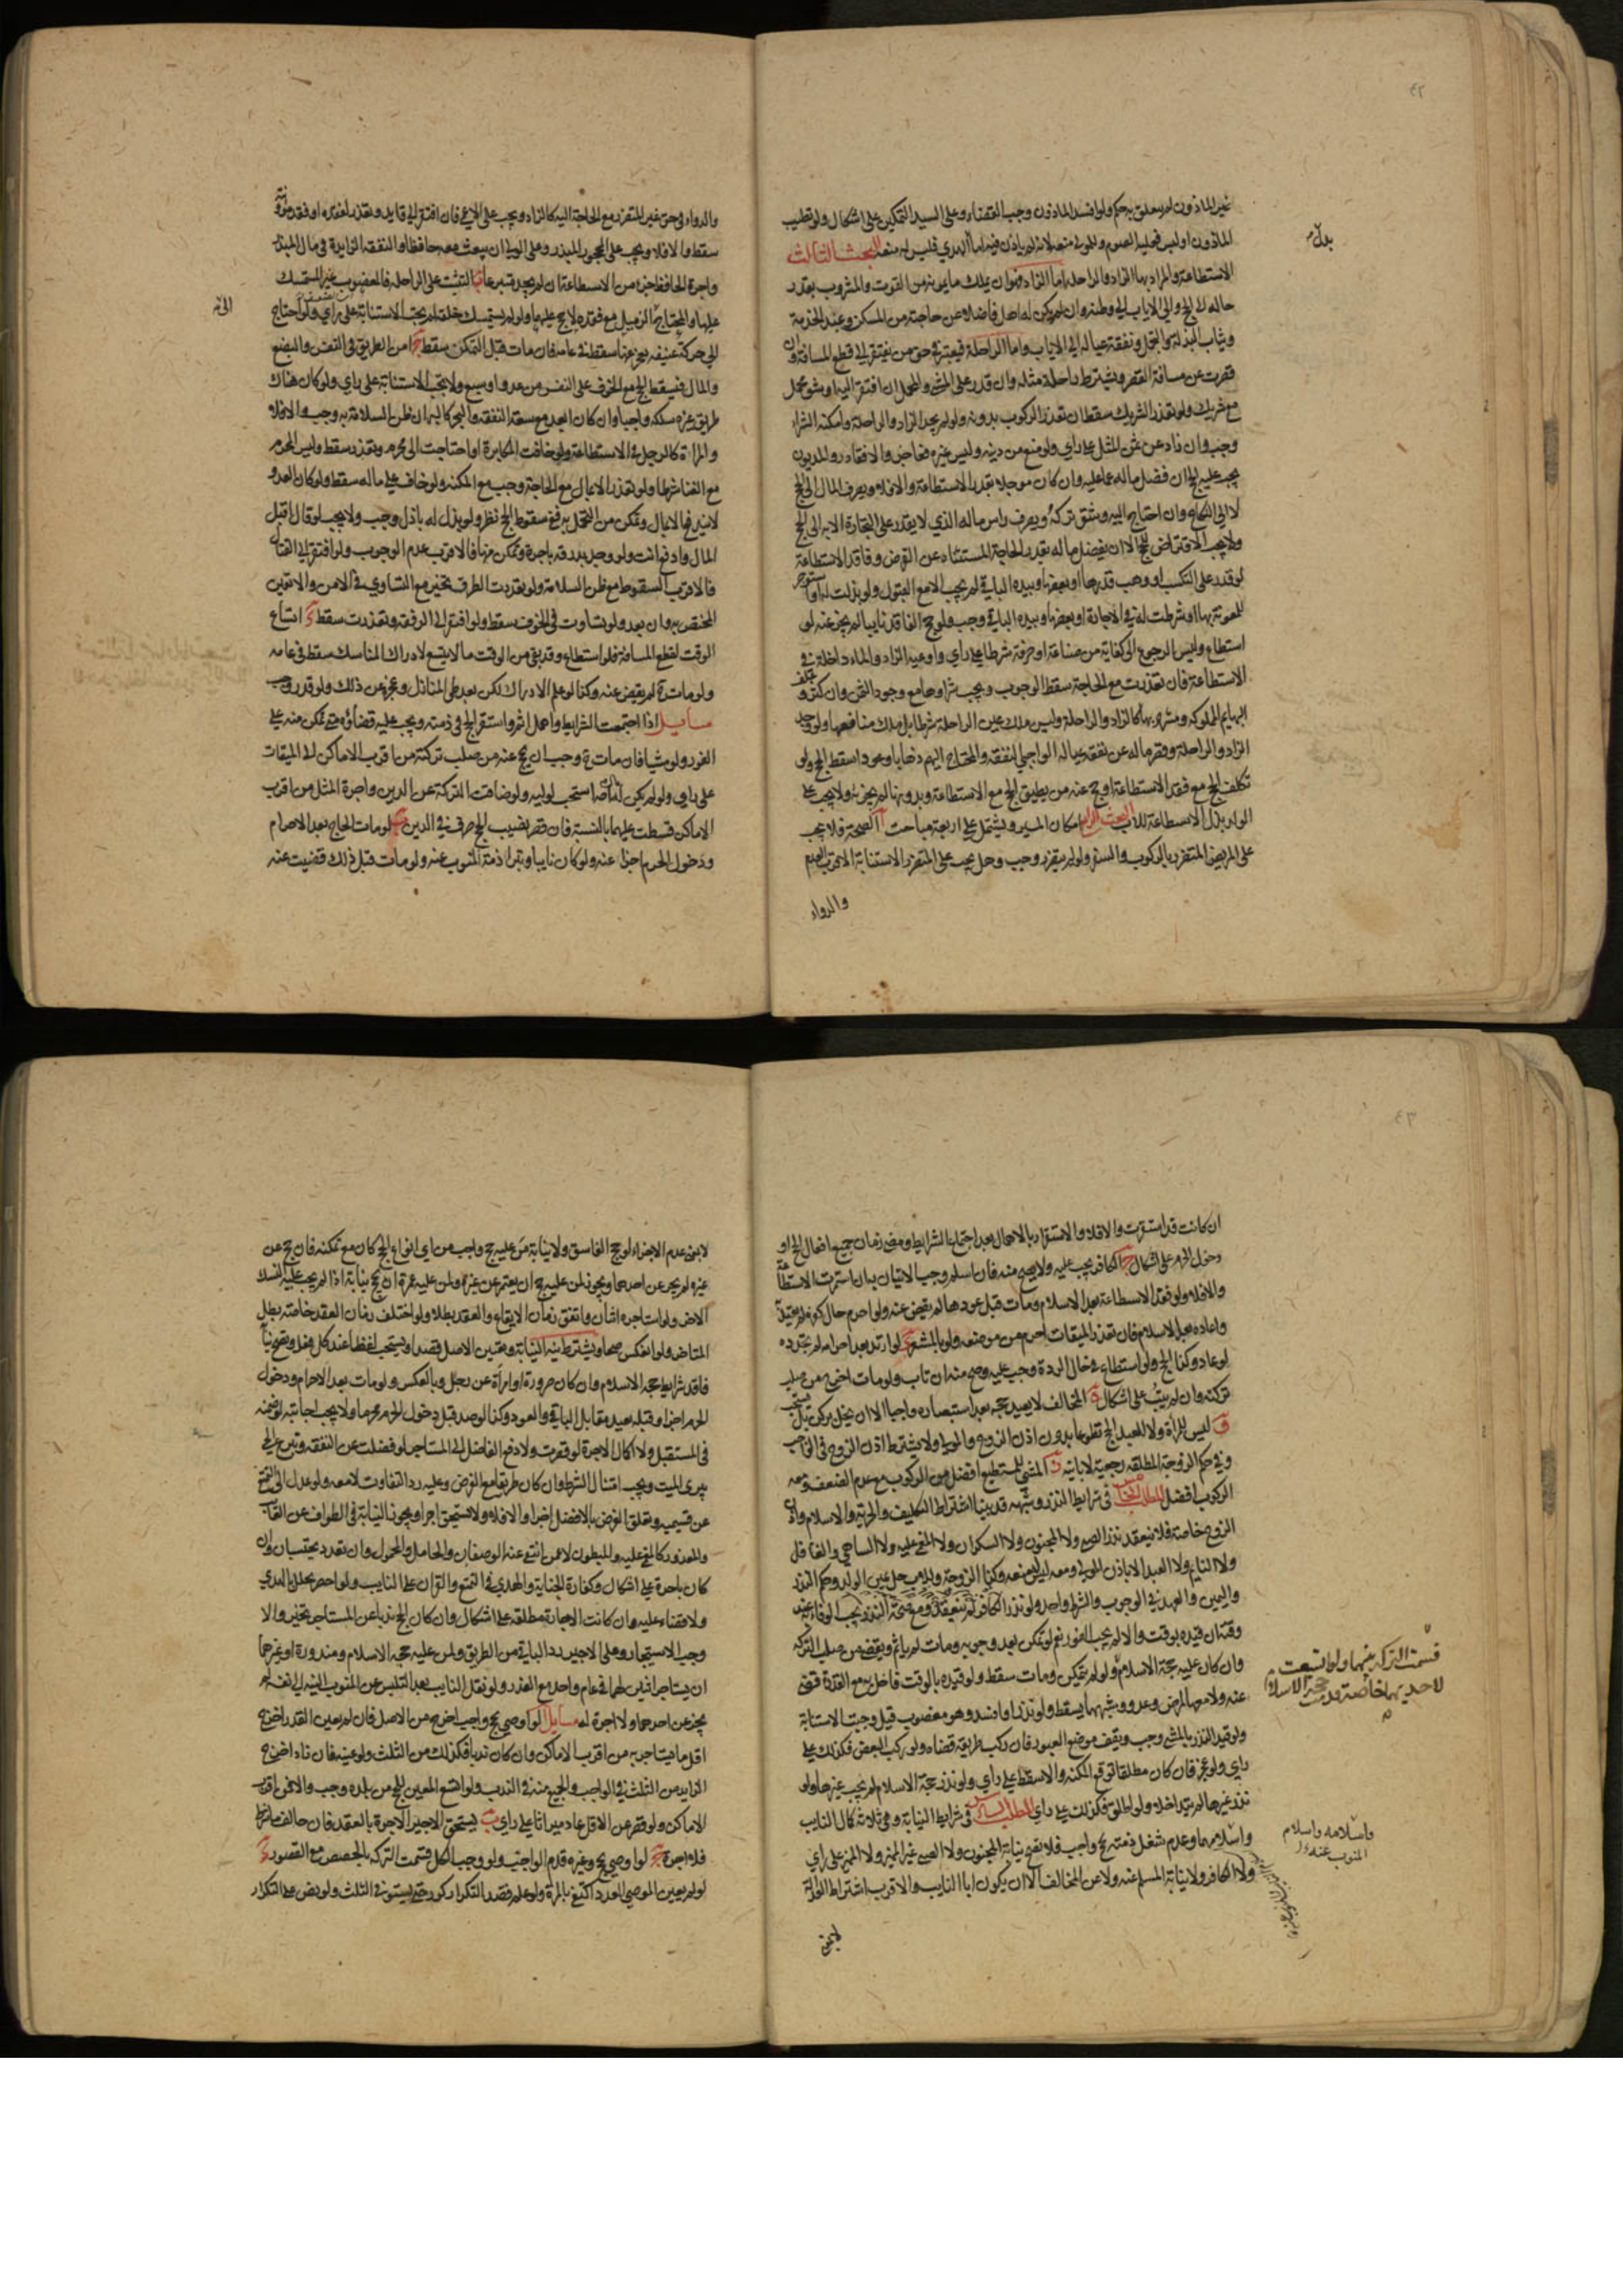 غير الماذون لم يتعلق به حكم ولو افسد الماذون وجب القضاء وعلى السيد التمكين على اشكال ولو تطيب
الماذون او لبس فعليه الصوم وللمولى منعه لانه لم ياذن فيه اما الهدي فليس له منعه البحث الثالث
بدل
الاستطاعة والمراد بها الزاد والراحلة اما الزاد فهو ان يملك ما يمونه من القوت والمشروب بقدر
حاله الى الحج والى الاياب الى وطنه وان لم يكن له اهل فاضلا عن حاجته من المسكن وعبد الخدمة
وثياب البذلة والتجمل ونفقة عياله الى الاياب واما الراحلة فيعتبر في حق من يفتقر الى قطع المسافة وان
قصرت عن مسافة القصر ويشترط راحلة مثله وان قدر على المشي والمحمل ان افتقر اليه او شق محمل
مع شريك ولو تعذر الشريك سقط ان تعذر الركوب بدونه ولو لم يجد الزاد والراحلة وامكنه الشراء
وجب وان زاد عن ثمن المثل على راي ولو منع من دينه وليس غيره فعاجز والا فقادر والمديون
يجب عليه الحج ان فضل ماله عما عليه وان كان موجلا بقدر الاستطاعة والا فلا ويصرف المال الى الحج
لا الى النكاح وان احتاج اليه وشق تركه ويصرف راس ماله الذي لا يقدر على التجارة الا به الى الحج
ولا يجب الاقتراض للحج الا ان يفضل ماله بقدر الحاجة المستثناة عن القرض وفاقد الاستطاعة
لو قدر على التكسب او وهب قدرها او بعضها وبيده الباقي لم يجب الا مع القبول ولو بذلت له او استوجر
للمعونة بها او شرطت له في الاجارة او بعضها وبيده الباقي وجب ولو حج الفاقد نايبا لم يجز عنه لو
استطاع وليس الرجوع الى كفاية من صناعة او حرفة شرطا على راي واوعية الزاد والماء داخلة في
الاستطاعة فان تعذرت مع الحاجة سقط الوجوب ويجب شراوها مع وجود الثمن وان كثر و علف
البهايم المملوكة ومشروبها كالزاد والراحلة وليس ملك عين الراحلة شرطا بل ملك منافعها ولو وجد
الزاد والراحلة وقصر ماله عن نفقة عياله الواجبي النفقة والمحتاج اليهم ذهابا وعودا سقط الحج ولو
تكلف الحج مع فقد الاستطاعة او حج عنه من يطيق الحج مع الاستطاعة وبدونها لم يجزئه ولا يجب على
الولد بذل الاستطاعة للاب البحث الرابع امكان المسير ويشتمل على اربعة مباحث ا الصحة فلا يجب
على المريض المتضرر بالركوب والسفر ولو لم يتضرر وجب وهل يجب على المتضرر الاستنابة الاقرب العدم
والدواء
والدواء في حق غير المتضرر مع الحاجة اليه كالزاد ويجب على الاعمى فان افتقر الى قايد وتعذر لفقده او فقد مونته
سقط والا فلا ويجب على المحجور المبذر وعلى الولي ان يبعث معه حافظا والنفقة الزايدة في مال المبذر
واجرة الحافظ جزء من الاستطاعة ان لم يجد متبرعا ب التثبت على الراحلة فالمعضوب غير المستمسك
عليها والمحتاج الى الزميل مع فقده لا حج عليهما ولو لم يستمسك خلقة لم يجب الاستنابة على راي ولو احتاج
الى حركة عنيفة يعجز عنها سقط في عامه فان مات قبل التمكن سقط ج امن الطريق في النفس والبضع
والمال فيسقط الحج مع الخوف على النفس من عدو او سبع ولا يجب الاستنابة على راي ولو كان هناك
طريق غيره سلكه واجبا وان كان ابعد مع سعة النفقة والبحر كالبر ان ظن السلامة به وجب والا فلا
والمراة كالرجل في الاستطاعة ولو خافت المكابرة او احتاجت الى محرم وتعذر سقط وليس المحرم
مع الغنا شرطا ولو تعذر الا بمال مع الحاجة وجب مع المكنة ولو خاف على ماله سقط ولو كان العدو
لا يندفع الا بمال وتمكن من التحمل به ففي سقوط الحج نظر ولو بذل له باذل وجب ولا يجب لو قال اقبل
المال وادفع انت ولو وجد بدرقة باجرة وتمكن منها فالاقرب عدم الوجوب ولو افتقر الى القتال
فالاقرب السقوط مع ظن السلامة ولو تعددت الطرق تخير مع التساوي في الامن والا تعين
المختص به وان بعد ولو تساوت في الخوف سقط ولو افتقر الى الرفقة وتعذرت سقط د اتساع
الوقت لقطع المسافة فلو استطاع وقد بقي من الوقت ما لا يتسع لادراك المناسك سقط في عامه
ولو مات ح لم يقض عنه وكذا لو علم الادراك لكن بعد طي المنازل وعجزه عن ذلك ولو قدر وجب
مسايل ا اذا اجتمعت الشرايط واهمل اثم واستقر الحج في ذمته ويجب عليه قضاؤه متى تمكن منه على
الفور ولو مشيا فان مات ح وجب ان يحج عنه من صلب تركته من اقرب الاماكن الى الميقات
على راي ولو لم يكن له مال استحب لوليه ولو ضاقت التركة عن الدين واجرة المثل من اقرب
الاماكن قسطت عليهما بالنسبة فان قصر نصيب الحج صرف في الدين ب لو مات الحاج بعد الاحرام
ودخول الحرم اجزا عنه ولو كان نايبا وتبرا ذمة المنوب عنه ولو مات قبل ذلك قضيت عنه
ان كانت قد استقرت والا فلا والاستقرار بالاهمال بعد اجتماع الشرايط ومضي زمان جميع افعال الحج او
دخول الحرم على اشكال ج الكافر يجب عليه ولا يصح منه فان اسلم وجب الاتيان به ان استمرت الاستطاعة
والا فلا ولو فقد الاستطاعة بعد الاسلام ومات قبل عودها لم يقض عنه ولو احرم حال كفره لم يعتد به
واعاده بعد الاسلام فان تعذر الميقات احرم من موضعه ولو بالمشعر د لو ارتد بعد احرامه لم يجدده
لو عاد وكذا الحج ولو استطاع في حال الردة وجب عليه وصح منه ان تاب ولو مات اخرج من صلب
تركته وان لم يتب على اشكال ه المخالف لا يعيد حجه بعد استبصاره واجبا الا ان يخل بركن بل يستحب
و ليس للمراة ولا للعبد الحج تطوعا بدون اذن الزوج والمولى ولا يشترط اذن الزوج في الواجب
وفي حكم الزوجة المطلقة رجعية لا باينة ز المشي للمستطيع افضل من الركوب مع عدم الضعف ومعه
الركوب افضل المطلب الخامس في شرايط النذر وشبهه قد بينا اشتراط التكليف والحرية والاسلام واذن
الزوج خاصة فلا ينعقد نذر الصبي ولا المجنون ولا السكران ولا المغمى عليه ولا الساهي والغافل
ولا النايم ولا العبد الا باذن المولى ومعه ليس له منعه وكذا الزوجة وللاب حل يمين الولد وحكم النذر
واليمين والعهد في الوجوب والشرط واحد ولو نذر الكافر لم ينعقد ومع صحة النذر يجب الوفاء به عند
وقته ان قيده بوقت والا لم يجب الفور نعم لو تمكن بعد وجوبه ومات لم ياثم ويقضى من صلب التركة
وان كان عليه حجة الاسلام ولو لم يتمكن ومات سقط ولو قيده بالوقت فاخل به مع القدرة قضي
قسمت التركة بينهما ولو اتسعت
لاحديهما خاصة قدمت حجة الاسلام
عنه ولا معها لمرض وعدو وشبههما يسقط ولو نذر او افسد وهو معضوب قيل وجبت الاستنابة
ولو قيد النذر بالمشي وجب ويقف موضع العبور فان ركب طريقه قضاه ولو ركب البعض فكذلك على
راي ولو عجز فان كان مطلقا توقع المكنة والا سقط على راي ولو نذر حجة الاسلام لم يجب غيرها ولو
نذر غيرها لم يتداخلا ولو اطلق فكذلك على راي المطلب السادس في شرايط النيابة وهي ثلاثة كمال النايب
واسلامه واسلام
المنوب عنه
واسلامهما وعدم شغل ذمته بحج واجب فلا يصح نيابة المجنون ولا الصبي غير المميز ولا المميز على راي
ولا الكافر ولا نيابة المسلم عنه ولا عن المخالف الا ان يكون ابا النايب والاقرب اشتراط العدالة
لا بمعنى
لا بمعنى عدم الاجزاء لو حج الفاسق ولا نيابة من عليه حج واجب من اي انواع الحج كان مع تمكنه فان حج عن
غيره لم يجز عن احدهما ويجوز لمن عليه حج ان يعتمر عن غيره ولمن عليه عمرة ان يحج نيابة اذا لم يجب عليه النسك
الاخر ولو استاجره اثنان واتفق زمان الايقاع والعقد بطلا ولو اختلف زمان العقد خاصة بطل
المتاخر ولو انعكس صحا ويشترط نية النيابة وتعيين الاصل قصدا ويستحب لفظا عند كل فعل وتصح نيابة
فاقد شرايط حجة الاسلام وان كان صرورة او امراة عن رجل وبالعكس ولو مات بعد الاحرام ودخول
الحرم اجزا وقبله يعيد مقابل الباقي والعود وكذا لو صد قبل دخول الحرم محرما ولا يجب اجابته لو ضمنه
في المستقبل ولا اكمال الاجرة لو قصرت ولا دفع الفاضل الى المستاجر لو فضلت عن النفقة وتبرع الحي
يبرئ الميت ويجب امتثال الشرط وان كان طريقا مع الغرض وعليه رد التفاوت لا معه ولو عدل الى التمتع
عن قسيميه وتعلق الغرض بالافضل اجزا والا فلا ولا يستحق اجرا ويجوز النيابة في الطواف عن الغايب
والمعذور كالمغمى عليه والمبطون لا عمن انتفى عنه الوصفان والحامل والمحمول وان تعدد يحتسبان وان
كان باجرة على اشكال وكفارة الجناية والهدي في التمتع والقران على النايب ولو احصر تحلل بالهدي
ولا قضاء عليه وان كانت الاجارة مطلقة على اشكال وان كان الحج ندبا عن المستاجر تخير والا
وجب الاستيجار وعلى الاجير رد الباقي من الطريق ولمن عليه حجة الاسلام ومنذورة او غيرهما
ان يستاجر اثنين لهما في عام واحد مع العذر ولو نقل النايب بعد التلبس عن المنوب النية الى نفسه لم
يجز عن احدهما ولا اجرة له مسايل ا لو اوصى بحج واجب اخرج من الاصل فان لم يعين القدر اخرج
اقل ما يستاجر به من اقرب الاماكن وان كان ندبا فكذلك من الثلث ولو عينه فان زاد اخرج
الزايد من الثلث في الواجب والجميع منه في الندب ولو اتسع المعين للحج من بلده وجب والا فمن اقرب
الاماكن ولو قصر عن الاقل عاد ميراثا على راي ب يستحق الاجير الاجرة بالعقد فان خالف ما شرط
فلا اجرة ج لو اوصى بحج وغيره قدم الواجب ولو وجب الكل قسمت التركة بالحصص مع القصور د
لو لم يعين الموصي العدد اكتفي بالمرة ولو علم قصد التكرار كرر حتى يستوفى الثلث ولو نص على التكرار